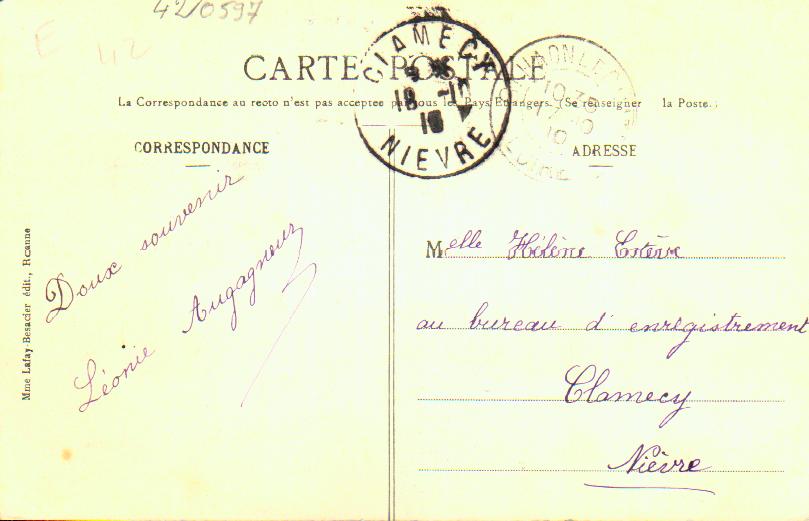 42/0597
E 42
CARTE POSTALE
La Correspondance au recto n'est pas acceptee par tous les Pays Etrangers. (Se renseigner à la Poste.)
CORRESPONDANCE
ADRESSE
CLAMECY
18 -10
10
NIEVRE
10 35
17 10
10
LOIRE
Doux souvenir
Léonie Augagneur
Mme Lafay-Besacier édit., Roanne
Melle Hélène
au bureau d'enrégistrement
Clamecy
Nièvre